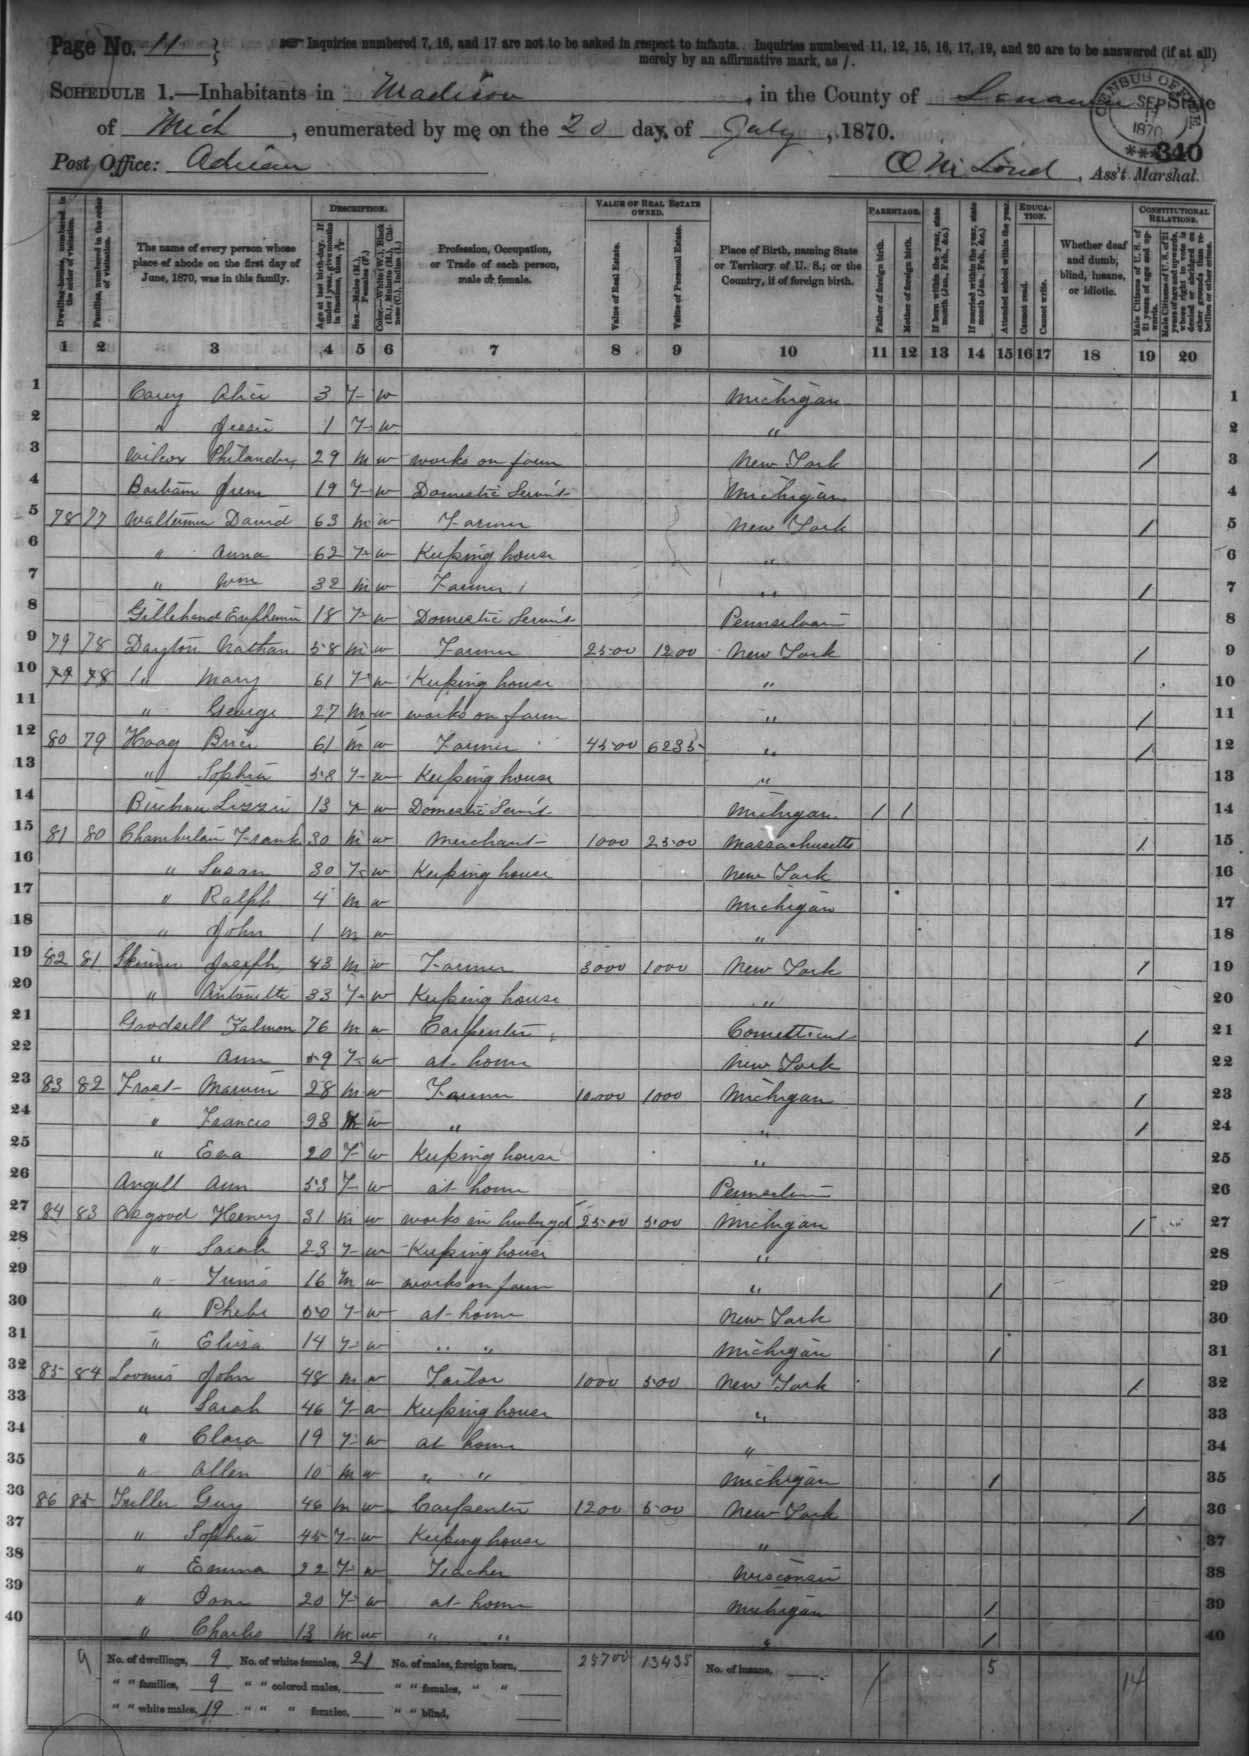 Page No. 11
Inquiries numbered 7, 16, and 17 are not to be asked in respect to infants. Inquiries numbered 11, 12, 15, 16, 17, 19, and 20 are to be answered (if at all)
merely by an affirmative mark, as /.
SCHEDULE 1.—Inhabitants in Madison, in the County of Lenawee, State
of Mich, enumerated by me on the 20 day of July, 1870.
CENSUS OFFICE SEP 17 1870 ***
340
Post Office: Adrian
Ass't Marshal.
Dwelling-houses, numbered in the order of visitation.
Families, numbered in the order of visitation.
The name of every person whose place of abode on the first day of June, 1870, was in this family.
DESCRIPTION.
Age at last birth-day. If under 1 year, give months in fractions, thus, 3/12.
Sex.—Males (M.), Females (F.)
Color.—White (W.), Black (B.), Mulatto (M.), Chinese (C.), Indian (I.)
Profession, Occupation, or Trade of each person, male or female.
VALUE OF REAL ESTATE OWNED.
Value of Real Estate.
Value of Personal Estate.
Place of Birth, naming State or Territory of U. S.; or the Country, if of foreign birth.
PARENTAGE.
Father of foreign birth.
Mother of foreign birth.
If born within the year, state month (Jan., Feb., &c.)
If married within the year, state month (Jan., Feb., &c.)
Attended school within the year.
EDUCATION.
Cannot read.
Cannot write.
Whether deaf and dumb, blind, insane, or idiotic.
CONSTITUTIONAL RELATIONS.
Male Citizens of U. S. of 21 years of age and upwards.
Male Citizens of U. S. of 21 years of age and upwards, whose right to vote is denied or abridged on other grounds than rebellion or other crime.
1 2 3 4 5 6 7 8 9 10 11 12 13 14 15 16 17 18 19 20
1 Carey Alice 3 F w Michigan 1
2 " Jessie 1 F w " 2
3 Wilcox Philander 29 m w works on farm New York / 3
4 Barham 19 F w Domestic Serv't Michigan 4
5 78 77 Walterman David 63 m w Farmer New York / 5
6 " Anna 62 F w Keeping house " 6
7 " Wm 32 m w Farmer " / 7
8 18 F w Domestic Serv't 8
9 79 78 Dayton Nathan 58 m w Farmer 2500 1200 New York / 9
10 79 78 " Mary 61 F w Keeping house " 10
11 " George 27 m w works on farm " / 11
12 80 79 Haag 61 m w Farmer 4500 6235 " / 12
13 " Sophia 58 F w Keeping house " 13
14 Lizzie 13 F w Domestic Serv't Michigan / / 14
15 81 80 Chamberlain Frank 30 m w Merchant 1000 2500 Massachusetts / 15
16 " Susan 30 F w Keeping house New York 16
17 " Ralph 4 m w Michigan 17
18 " John 1 m w " 18
19 82 81 Skinner Joseph 43 m w Farmer 3000 1000 New York / 19
20 " Antonette 33 F w Keeping house " 20
21 Goodsell 76 m w Carpenter / 21
22 " Ann 59 F w at home New York 22
23 83 82 Frost 28 m w Farmer 10000 1000 Michigan / 23
24 " Francis 23 M w " " / 24
25 " Eva 20 F w Keeping house " 25
26 Angell Ann 53 F w at home 26
27 84 83 Osgood Heenry 31 m w works in 2500 500 Michigan / 27
28 " Sarah 23 F w Keeping house " 28
29 " 16 m w works on farm " / 29
30 " Phebe 50 F w at home New York 30
31 " Eliza 14 F w " " Michigan / 31
32 85 84 Loomis John 48 m w Tailor 1000 500 New York / 32
33 " Sarah 46 F w Keeping house " 33
34 " Clara 19 F w at home " 34
35 " Allen 10 m w " " Michigan / 35
36 86 85 Guy 46 m w Carpenter 1200 500 New York / 36
37 " Sophia 45 F w Keeping house " 37
38 " Emma 22 F w Teacher Wisconsin 38
39 " 20 F w at home Michigan / 39
40 " Charles 13 m w " " " / 40
9 No. of dwellings, 9 No. of white females, 21 No. of males, foreign born, 25700 13435 No. of insane, / 5 14
" " families, 9 " " colored males, " " females, " "
" " white males, 19 " " " females, " " blind,